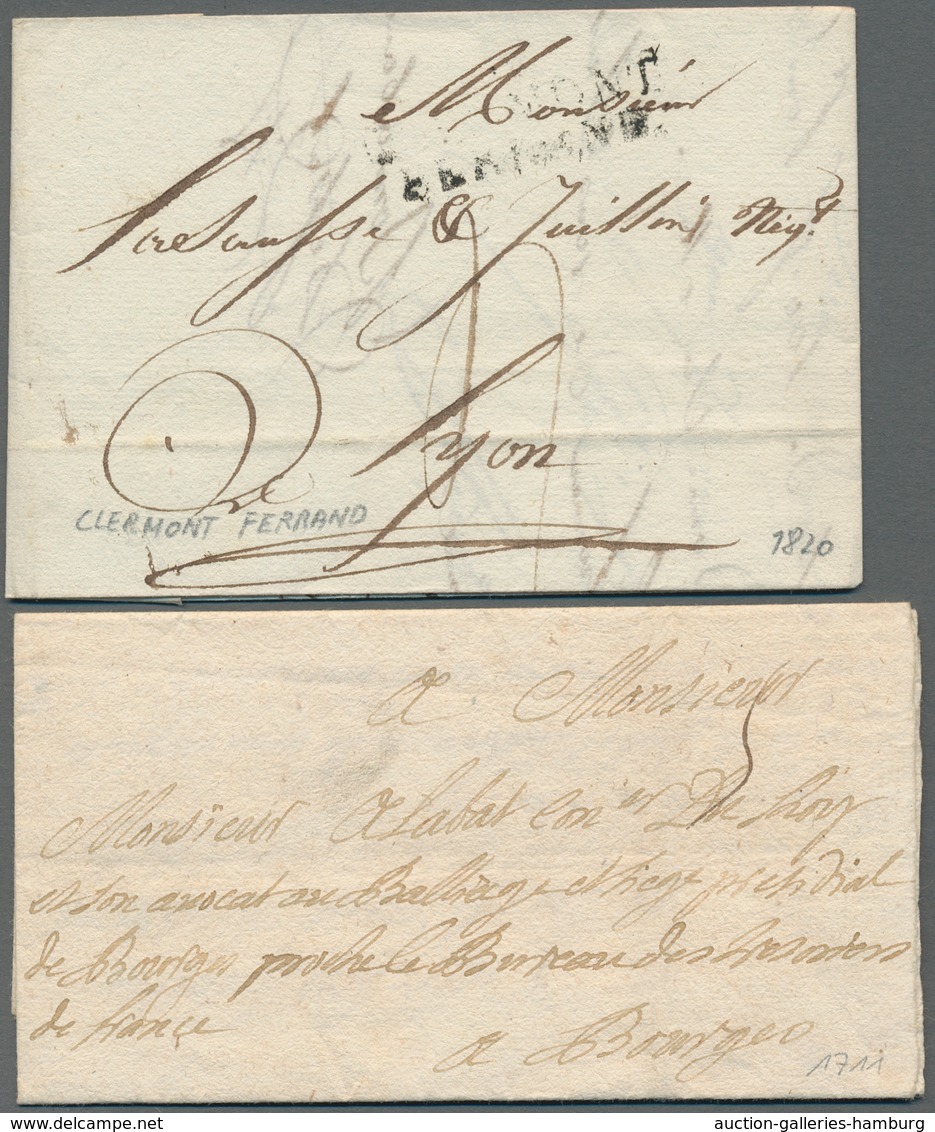 Monsieur
MONT
FERRAND.
& Juillon Neg.t
Lyon
CLERMONT FERRAND
1820
a Monsieur
Monsieur Delabat Con.er Du Roy
et son avocat au Balliage et siege presidial
de Bourges proche le Bureau des tresoriers
de france
a Bourges
1711
www.delcampe.net
auction-galleries-hamburg